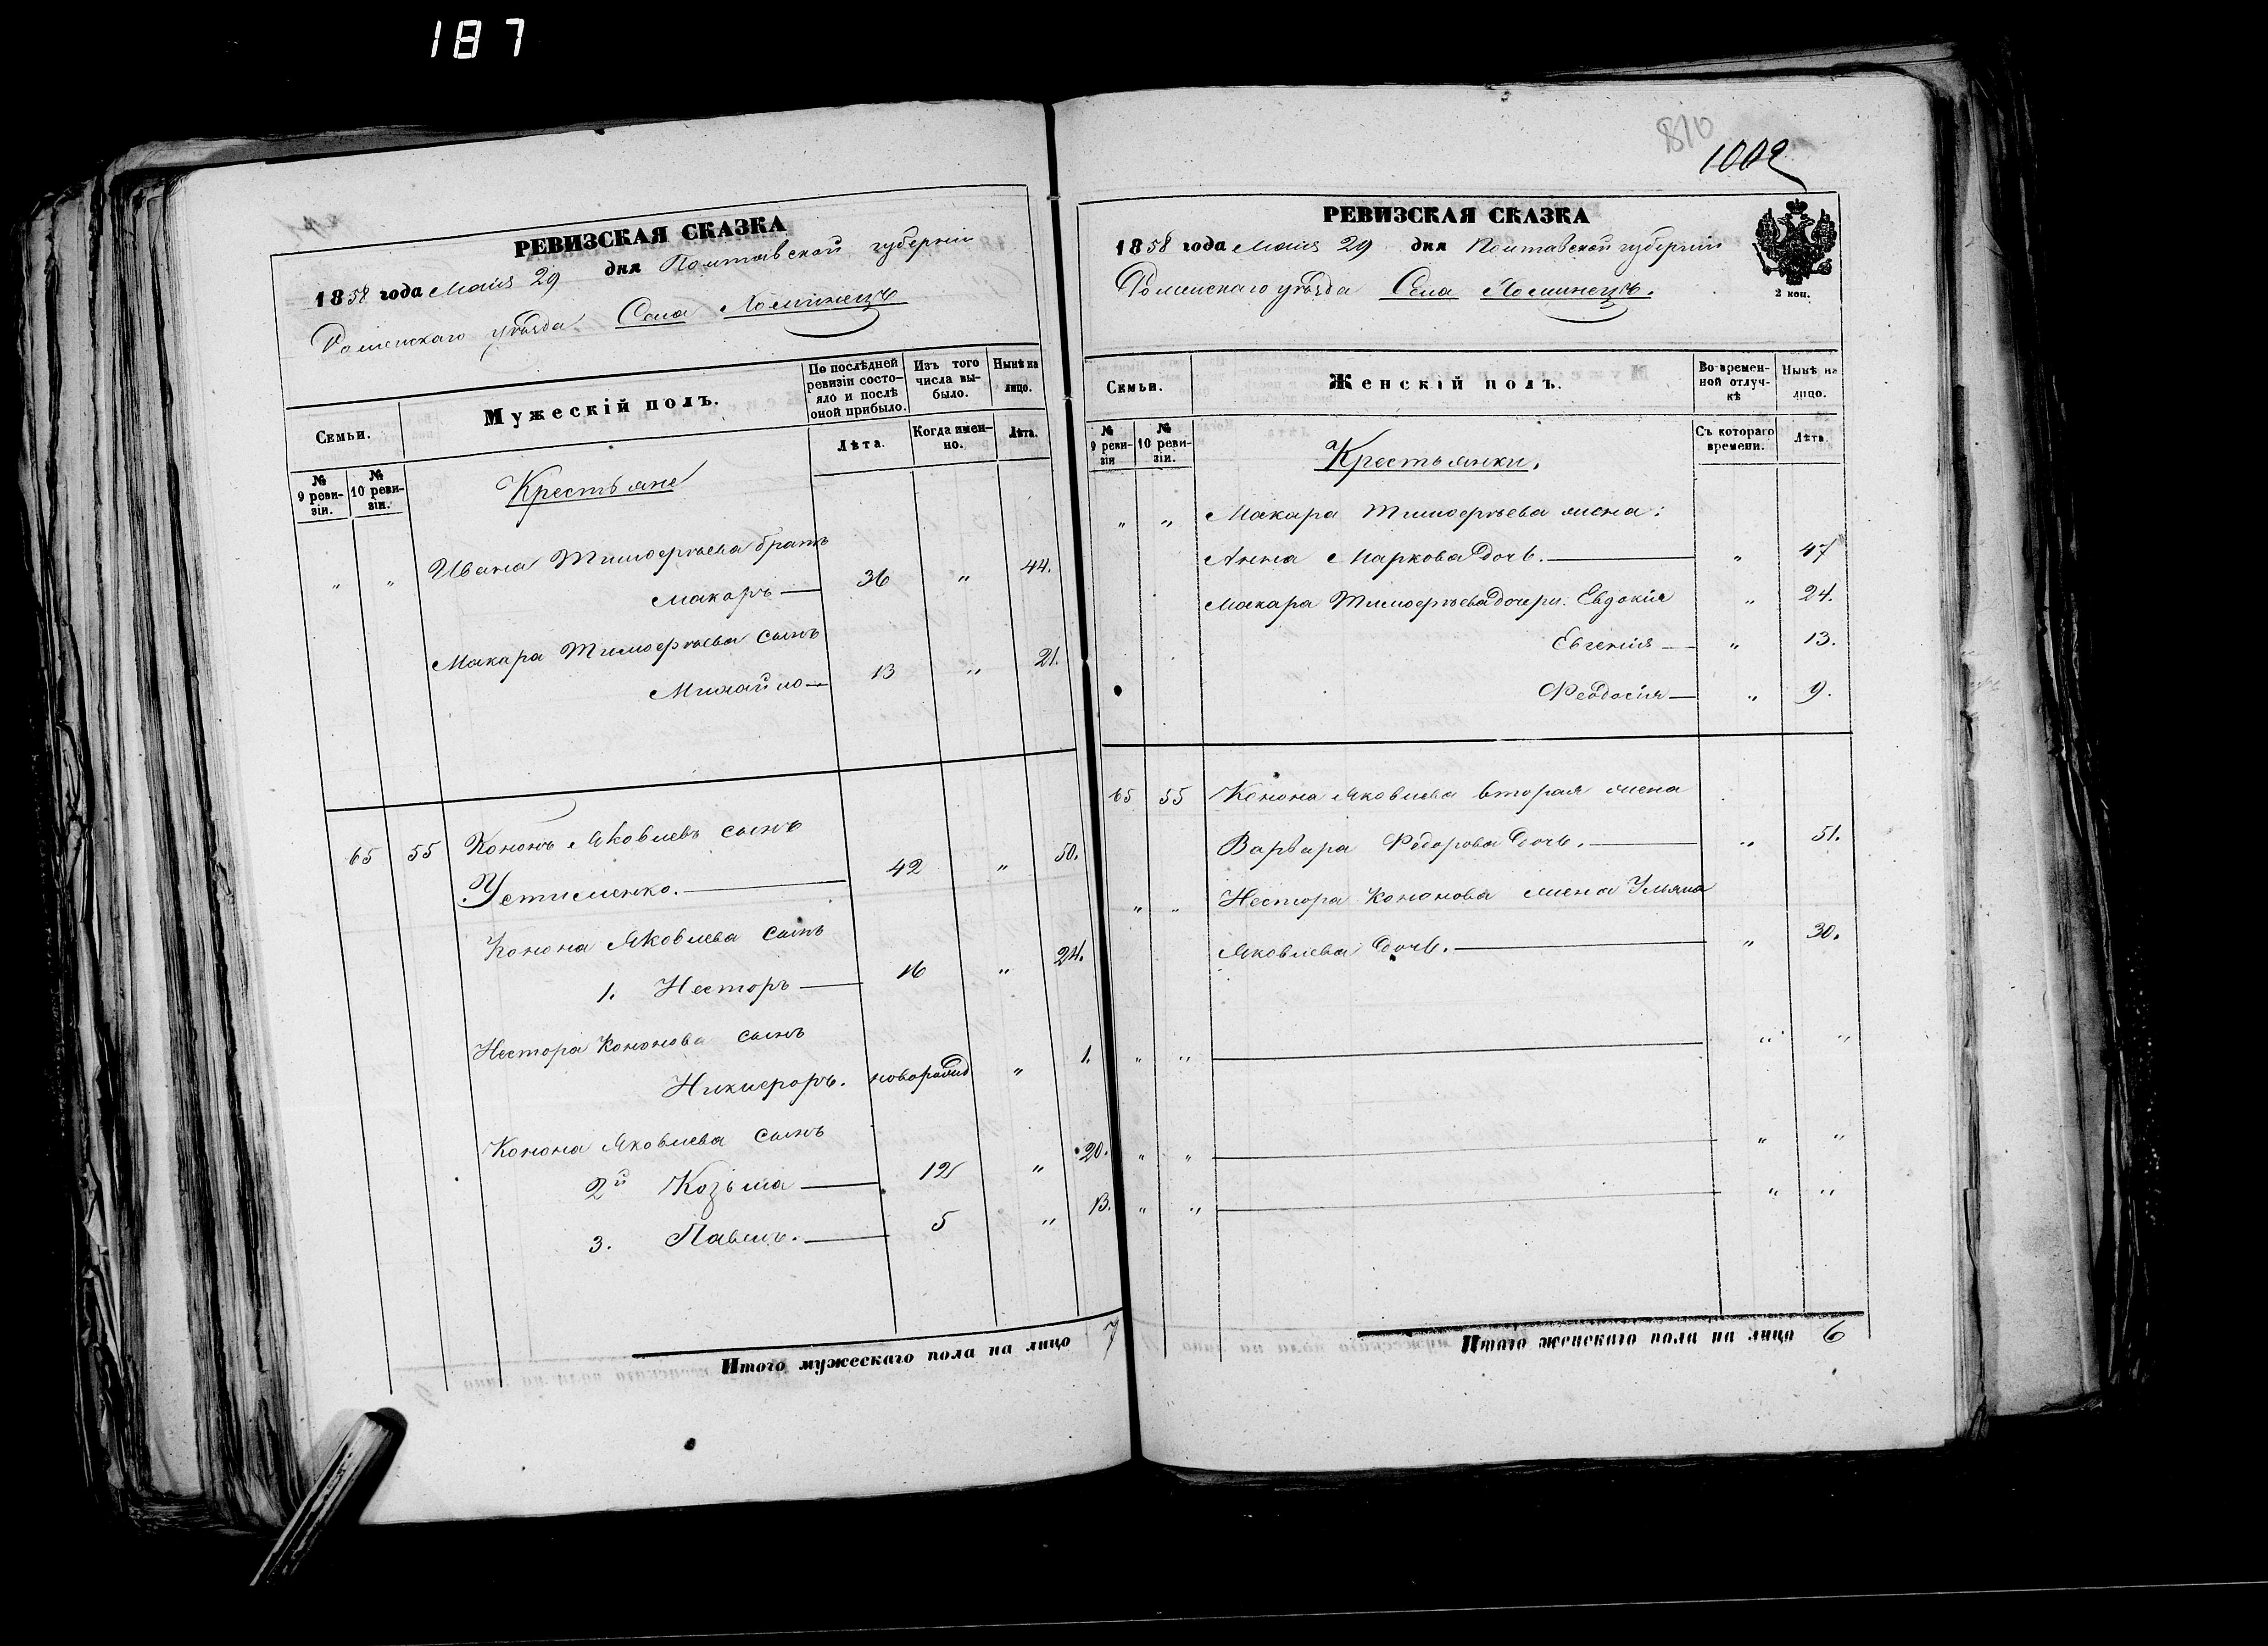 187
РЕВИЗСКАЯ СКАЗКА
1858 года Маия 29 дня Полтавской губерніи
Роменскаго уѣзда Села Хоминецъ
Семьи.
Мужескій полъ.
По послѣдней ревизіи состояло и послѣ оной прибыло.
Изъ того числа выбыло.
Нынѣ на лицо.
№ 9 ревизіи.
№ 10 ревизіи.
Лѣта.
Когда именно.
Лѣта.
Крестьяне
" " Ивана Тимофѣева братъ
Макаръ — 36 " 44.
Макара Тимофѣева сынъ
Михайло — 13 " 21.
65 55 Кононъ Яковлевъ сынъ
Устименко. — 42 " 50.
Конона Яковлева сынъ
1. Несторъ — 16 " 24.
Нестора Кононова сынъ
Никифоръ. новорожд " 1.
Конона Яковлева сынъ
2й Козьма — 12 " 20.
3. Павелъ. — 5 " 13.
Итого мужескаго пола на лицо 7
810
1002
РЕВИЗСКАЯ СКАЗКА
1858 года Маия 29 дня Полтавской губерніи
Роменскаго уѣзда Села Хоминецъ.
2 коп.
Семьи.
Женскій полъ.
Во временной отлучкѣ
Нынѣ на лицо.
№ 9 ревизіи
№ 10 ревизіи.
Съ котораго времени.
Лѣта
Крестьянки.
" " Макара Тимофѣева жена:
Анна Маркова дочь. — " 47
Макара Тимофѣева дочери. Евдокія " 24.
Евгенія — " 13.
Феодосія — " 9.
65 55 Конона Яковлева вторая жена
Варвара Федорова дочь. — " 51.
" " Нестора Кононова жена Ульяна
Яковлева дочь. — " 30.
" " — " "
" " — " "
" " — " "
Итого женскаго пола на лицо 6